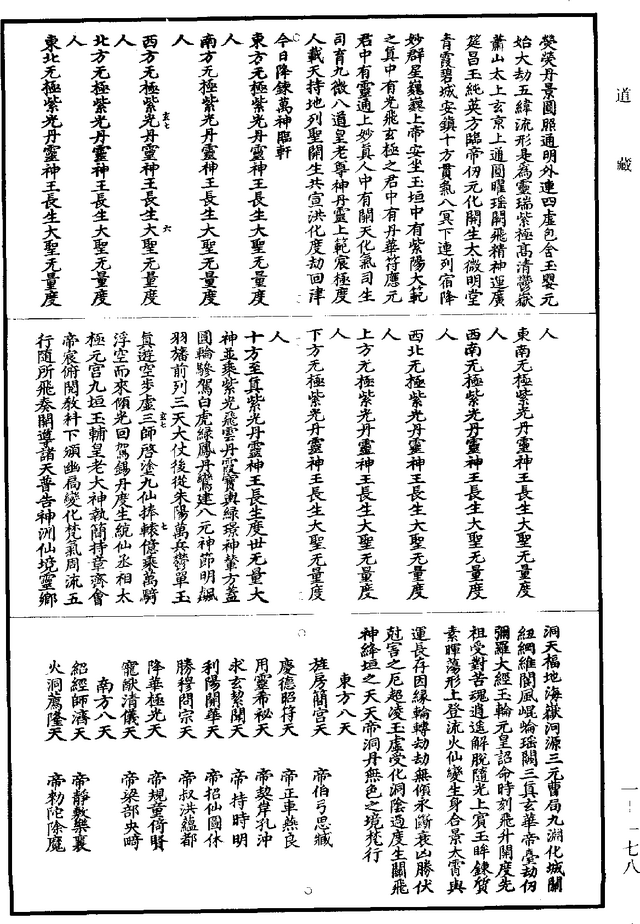 道藏
熒熒丹景圓照通明外連四虛包含玉嬰元
始大劫五緯流形是為靈瑞紫極高清鬱嶽
蕭山太上玄京上通圓曜瑶關飛精神運廣
筵昌玉純英方臨帝仞元化開生太微明堂
青霞碧城安鎮十方貫氣八冥下連列宿降
妙群星巍巍上帝安坐玉垣中有紫陽大範
之真中有光飛玄極之君中有丹華符應元
君中有靈通上妙真人中有關天化氣司生
司育九微八道皇老尊神丹靈上範宸極度
人載天持地列聖開生共宣洪化度劫回津
今日降鍊萬神臨軒
東方无極紫光丹靈神王長生大聖无量度
人
南方无極紫光丹靈神王長生大聖无量度
人
西方无極紫光丹靈神王長生大聖无量度
人
北方无極紫光丹靈神王長生大聖无量度
人
東北无極紫光丹靈神王長生大聖无量度
人
東南无極紫光丹靈神王長生大聖无量度
人
西南无極紫光丹靈神王長生大聖无量度
人
西北无極紫光丹靈神王長生大聖无量度
人
上方无極紫光丹靈神王長生大聖无量度
人
下方无極紫光丹靈神王長生大聖无量度
人
十方至真紫光丹靈神王長生度世无量大
神並乘紫光飛雲丹霞寶輿綠璟神輦方蓋
圓輪驂駕白虎綠鳳丹鸞建八元神節明飆
羽旛前列三天大仗後從朱陽萬兵鬱單玉
真遊空步虛三師啓塗九仙捧轅億乘萬騎
浮空而來傾光回駕錫丹度生統仙丞相太
極元宮九垣玉輔皇老大神執簡持章濟會
帝宸俯閱教科下頒幽局變化梵氣周流五
行隨所飛奏開導諸天普告神洲仙境靈鄉
洞天福地海嶽河源三元曹局九淵化城關
紐綱維閬風崐崘瑶闕三真玄華帝臺劫仞
彌羅大經玉輪元皇詔命時刻飛升開度先
祖受對苦魂逍遥解脫隨光上賓玉眸鍊質
素暉蕩形上登流火仙變生身合景太霄與
運長存因緣輪轉劫劫無傾永斷衰凶勝伏
尅害之厄超淩玉虛受化洞陰過度生關飛
神絳垣之天天帝洞丹無色之境梵行
東方八天
旌房簡宮天　帝伯弓思臧
慶德昭符天　帝正車燕良
用靈希祕天　帝契岸孔沖
永玄絜開天　帝持時明
利陽開華天　帝招仙國休
勝穆問宗天　帝叔洪蘊都
降華極光天　帝規童倚賢
寵猷清儀天　帝梁部央畸
南方八天
紹經師濟天　帝靜數樂襄
火洞鷹隆天　帝勑陀除魔
玄七
六
玄七
七
一―一七八